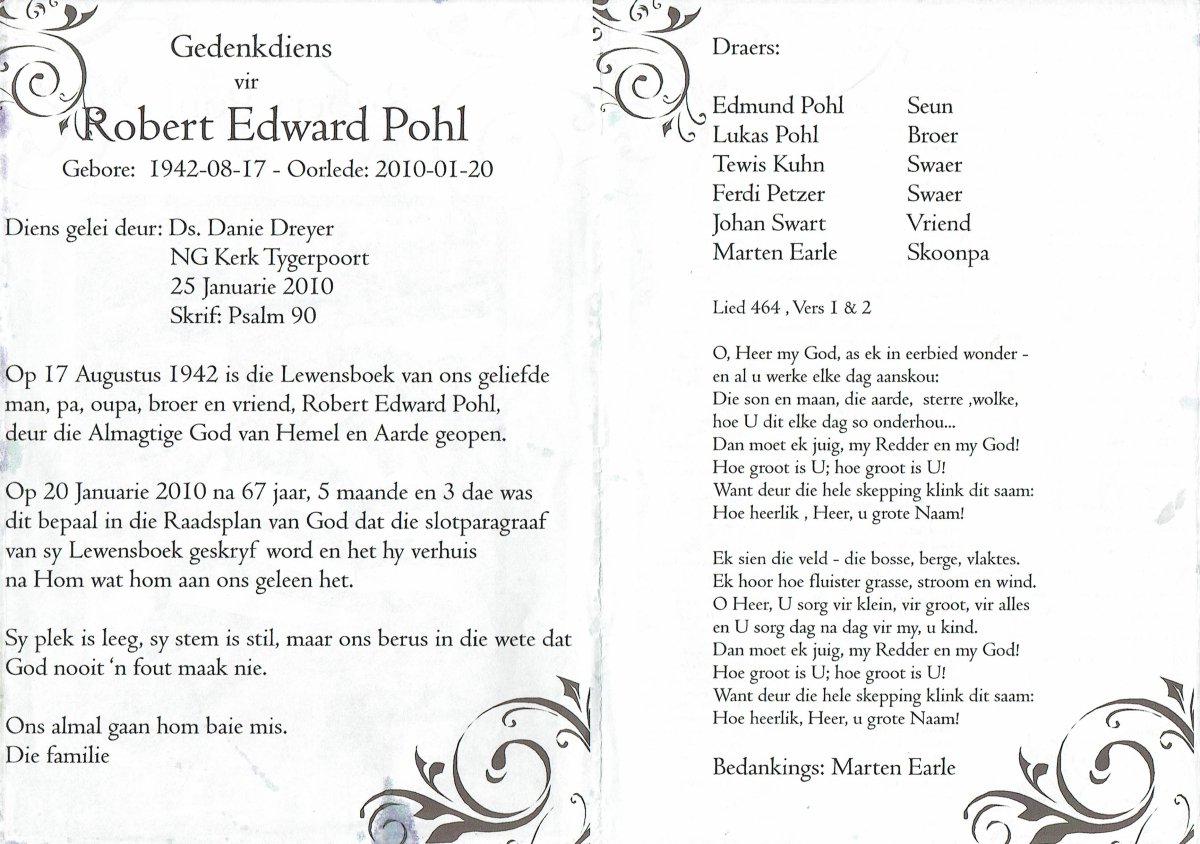 Gedenkdiens
vir
Robert Edward Pohl
Gebore: 1942-08-17 - Oorlede: 2010-01-20
Diens gelei deur: Ds. Danie Dreyer
NG Kerk Tygerpoort
25 Januarie 2010
Skrif: Psalm 90
Op 17 Augustus 1942 is die Lewensboek van ons geliefde
man, pa, oupa, broer en vriend, Robert Edward Pohl,
deur die Almagtige God van Hemel en Aarde geopen.
Op 20 Januarie 2010 na 67 jaar, 5 maande en 3 dae was
dit bepaal in die Raadsplan van God dat die slotparagraaf
van sy Lewensboek geskryf word en het hy verhuis
na Hom wat hom aan ons geleen het.
Sy plek is leeg, sy stem is stil, maar ons berus in die wete dat
God nooit ‘n fout maak nie.
Ons almal gaan hom baie mis.
Die familie
Draers:
Edmund Pohl Seun
Lukas Pohl Broer
Tewis Kuhn Swaer
Ferdi Petzer Swaer
Johan Swart Vriend
Marten Earle Skoonpa
Lied 464 , Vers 1 & 2
O, Heer my God, as ek in eerbied wonder -
en al u werke elke dag aanskou:
Die son en maan, die aarde, sterre ,wolke,
hoe U dit elke dag so onderhou...
Dan moet ek juig, my Redder en my God!
Hoe groot is U; hoe groot is U!
Want deur die hele skepping klink dit saam:
Hoe heerlik , Heer, u grote Naam!
Ek sien die veld - die bosse, berge, vlaktes.
Ek hoor hoe fluister grasse, stroom en wind.
O Heer, U sorg vir klein, vir groot, vir alles
en U sorg dag na dag vir my, u kind.
Dan moet ek juig, my Redder en my God!
Hoe groot is U; hoe groot is U!
Want deur die hele skepping klink dit saam:
Hoe heerlik, Heer, u grote Naam!
Bedankings: Marten Earle